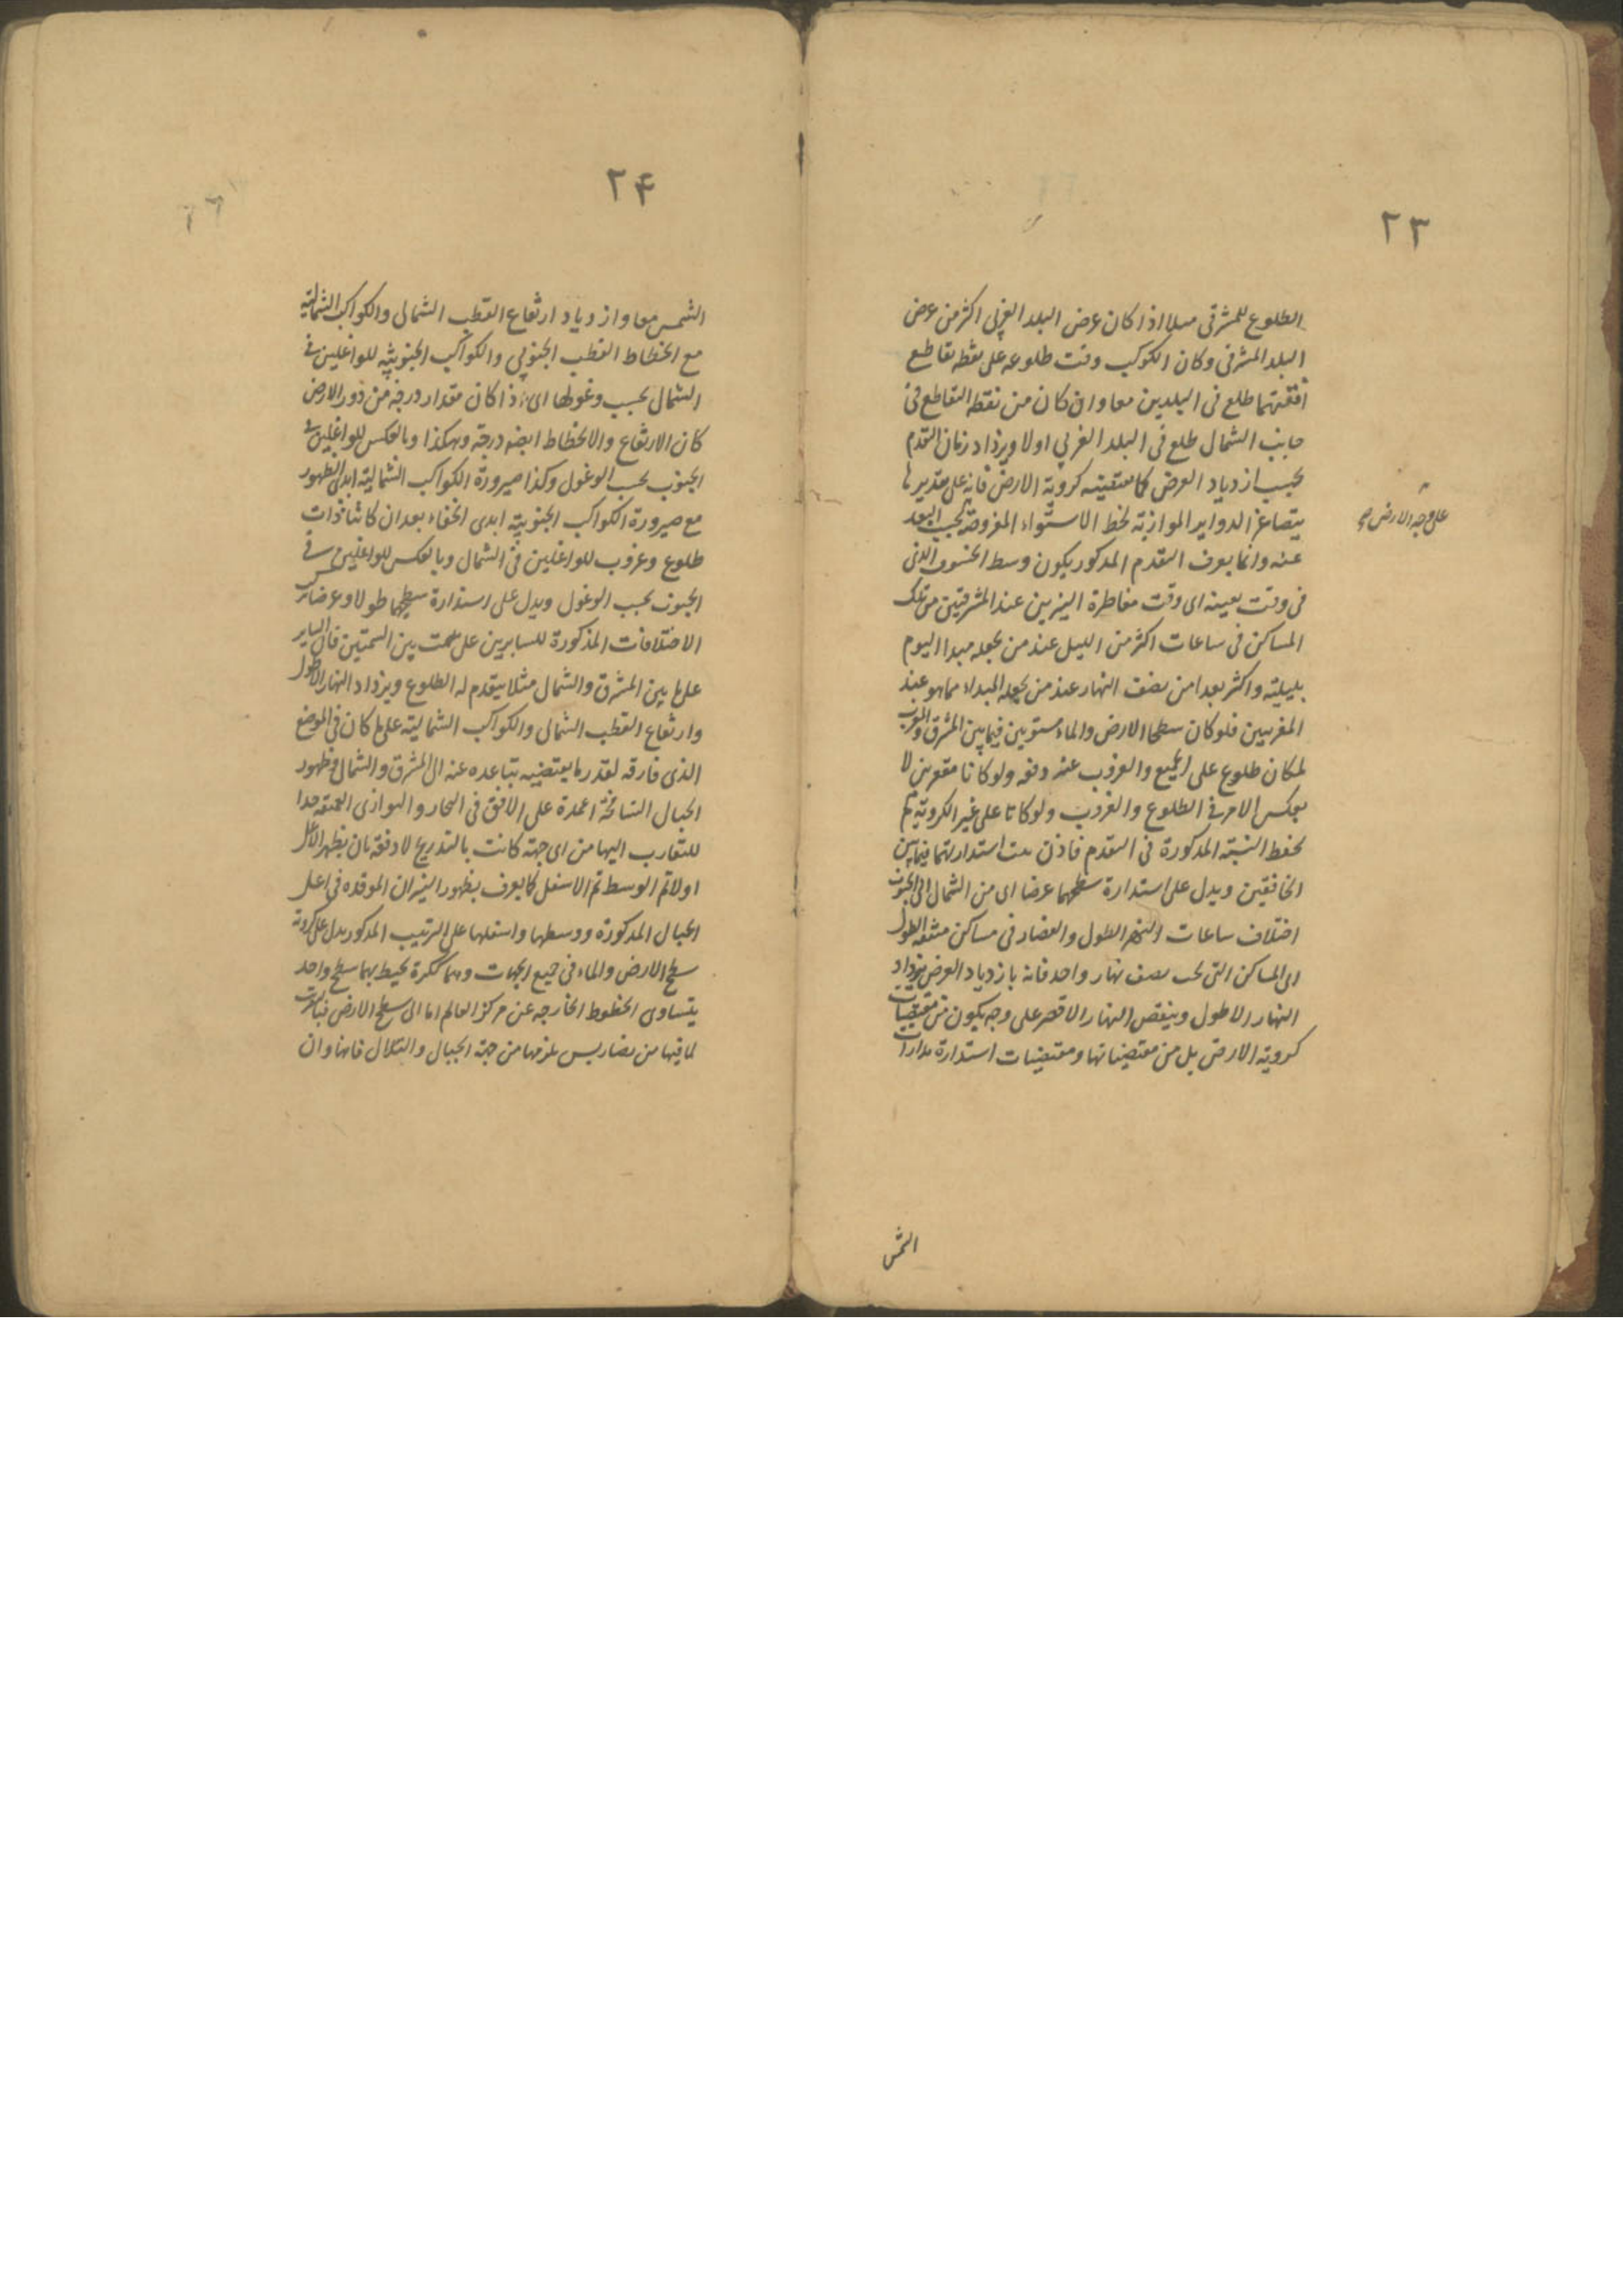 ٢٣
الطلوع للمشرقى مثلا اذا كان عرض البلد الغربى اكثر من عرض
البلد المشرقى وكان الكوكب وقت طلوعه على نقطه تقاطع
افقيهما طلع فى البلدين معا وان كان من نقطه التقاطع فى
جانب الشمال طلع فى البلد الغربى اولا ويزداد زمان التقدم
بحسب ازدياد العرض كما تقتضيه كروية الارض فانه على تقديرها
يتصاغر الدواير الموازية لخط الاستواء المفروضة بحسب البعد
على وجه الارض صح
عنه وانما يعرف التقدم المذكور بكون وسط الخسوف الذى
فى وقت بعينه اى وقت مقاطرة النيرين عند المشرقيين من تلك
المساكن فى ساعات اكثر من الليل عند من يجعله مبدا اليوم
بليلته واكثر بعدا من نصف النهار عند من يجعله المبداء مما هو عند
المغربيين فلو كان سطحا الارض والماء مستويين فيما بين المشرق والمغرب
لكان طلوع على الجميع والغروب عنه دفعه ولو كانا مقعرين لا
نعكس الامر فى الطلوع والغروب ولو كانا على غير الكروية لم
تحفظ النسبة المذكورة فى التقدم فاذن ثبت استدارتهما فيما بين
الخافقين ويدل على استدارة سطحهما عرضا اى من الشمال الى الجنوب
اختلاف ساعات النهر الطول والقصار فى مساكن متفقه الطول
اى المساكن التى تحت نصف نهار واحد فانه بازدياد العرض يزداد
النهار الاطول وينقص النهار الاقصر على وجه يكون من مقتضيات
كروية الارض بل من مقتضياتها ومقتضيات استدارة مدارات
الشمس
٢۴
الشمس معا وازدياد ارتفاع القطب الشمالى والكواكب الشمالية
مع انحطاط القطب الجنوبى والكواكب الجنوبية للواغلين فى
الشمال بحسب وغولها اى اذا كان مقدار درجة من دور الارض
كان الارتفاع والانحطاط ايضه درجة وهكذا وبالعكس للواغلين فى
الجنوب بحسب الوغول وكذا صيرورة الكواكب الشمالية ابدى الظهور
مع صيرورة الكواكب الجنوبية ابدى الخفاء بعد ان كانتا ذات
طلوع وغروب للواغلين فى الشمال وبالعكس للواغلين فى
الجنوب بحسب الوغول ويدل على استدارة سطحهما طولا وعرضا تركب
الاختلافات المذكورة للسايرين على سمت بين السمتين فان الساير
على ما بين المشرق والشمال مثلا يتقدم له الطلوع ويزداد النهار الاطول
وارتفاع القطب الشمالى والكواكب الشمالية على ما كان فى الموضع
الذى فارقه لقدر ما يقتضيه تباعده عنه الى المشرق والشمال وظهور
الجبال الشامخة اعمدة على الافق فى البحار و البوادى العميقه جدا
للتقارب اليها من اى جهة كانت بالتدريج لا دفعة بان يظهر الاعلى
اولا ثم الوسط ثم الاسفل كما يعرف بظهور النيران الموقده فى اعلى
الجبال المذكورة ووسطها واسفلها على الترتيب المذكور يدل على كروية
سطح الارض والماء فى جميع الجهات وهما ككرة يحيط بهما سطح واحد
يتساوى الخطوط الخارجه عن مركز العالم اما الى سطح الارض فبالتقريب
لما فيها من تضاريس يلزمها من جهة الجبال والتلال فانها وان